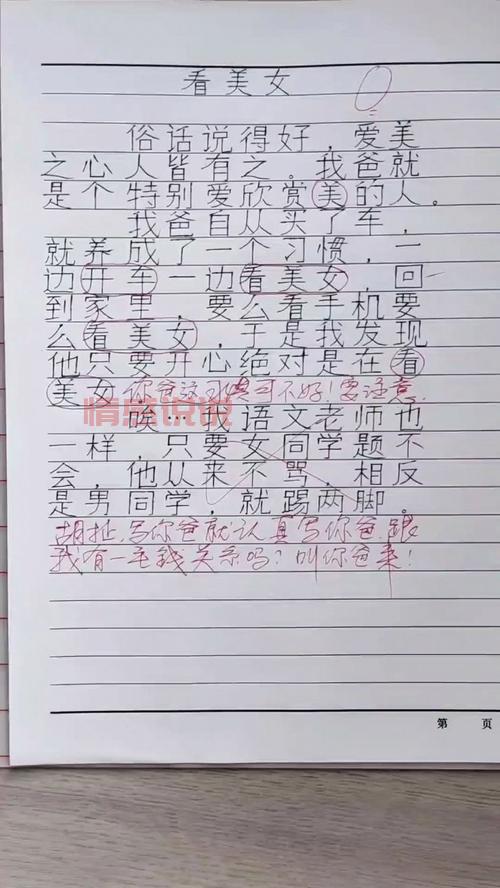 看美女
俗话说得好，爱美
之心人皆有之。我爸就
是个特别爱欣赏美的人。
我爸自从买了车，
就养成了一个习惯，一
边开车一边看美女，回
到家里，要么看手机要
么看美女，于是我发现
他只要开心绝对是在看
美女你爸这习惯可不好！要注意.
情感说说
唉…我语文老师也
一样，只要女同学题不
会，他从来不骂，相反
是男同学，就踢两脚。
胡扯，写你爸就认真写你爸，跟
我有一毛钱关系吗？叫你爸来！
第 页